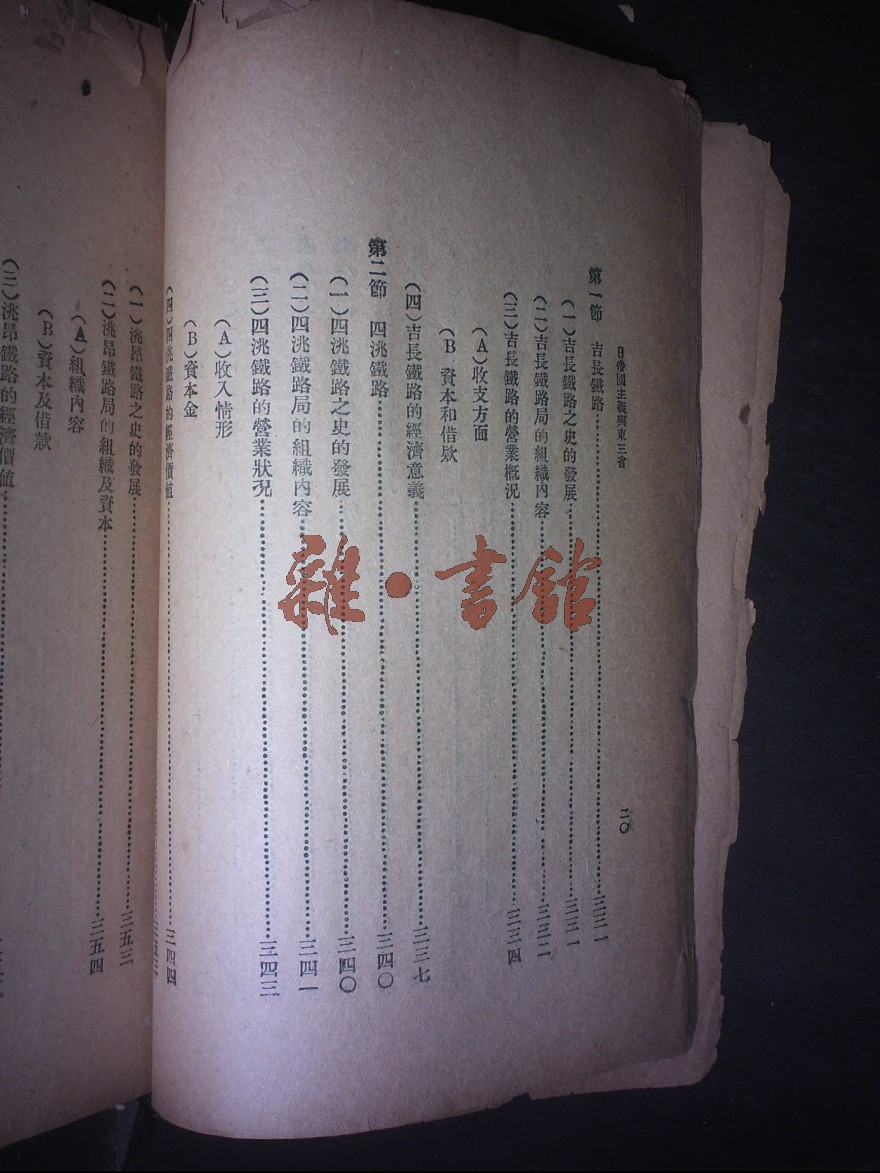 日帝國主義與東三省
二〇
第一節 吉長鐵路……三三一
(一)吉長鐵路之史的發展……三三一
(二)吉長鐵路局的組織內容……三三二
(三)吉長鐵路的營業概況……三三四
(A)收支方面
(B)資本和借欵
(四)吉長鐵路的經濟意義……三三七
第二節 四洮鐵路……三四〇
(一)四洮鐵路之史的發展……三四〇
(二)四洮鐵路局的組織內容……三四一
(三)四洮鐵路的營業狀況……三四三
(A)收入情形
(B)資本金
(四)四洮鐵路的經濟價值……三四四
(一)洮昂鐵路之史的發展……三五三
(二)洮昂鐵路局的組織及資本……三五四
(A)組織內容
(B)資本及借款
(三)洮昂鐵路的經濟價值……
雜·書館